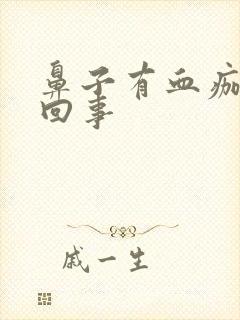 鼻子有血痂
回事
戚一生